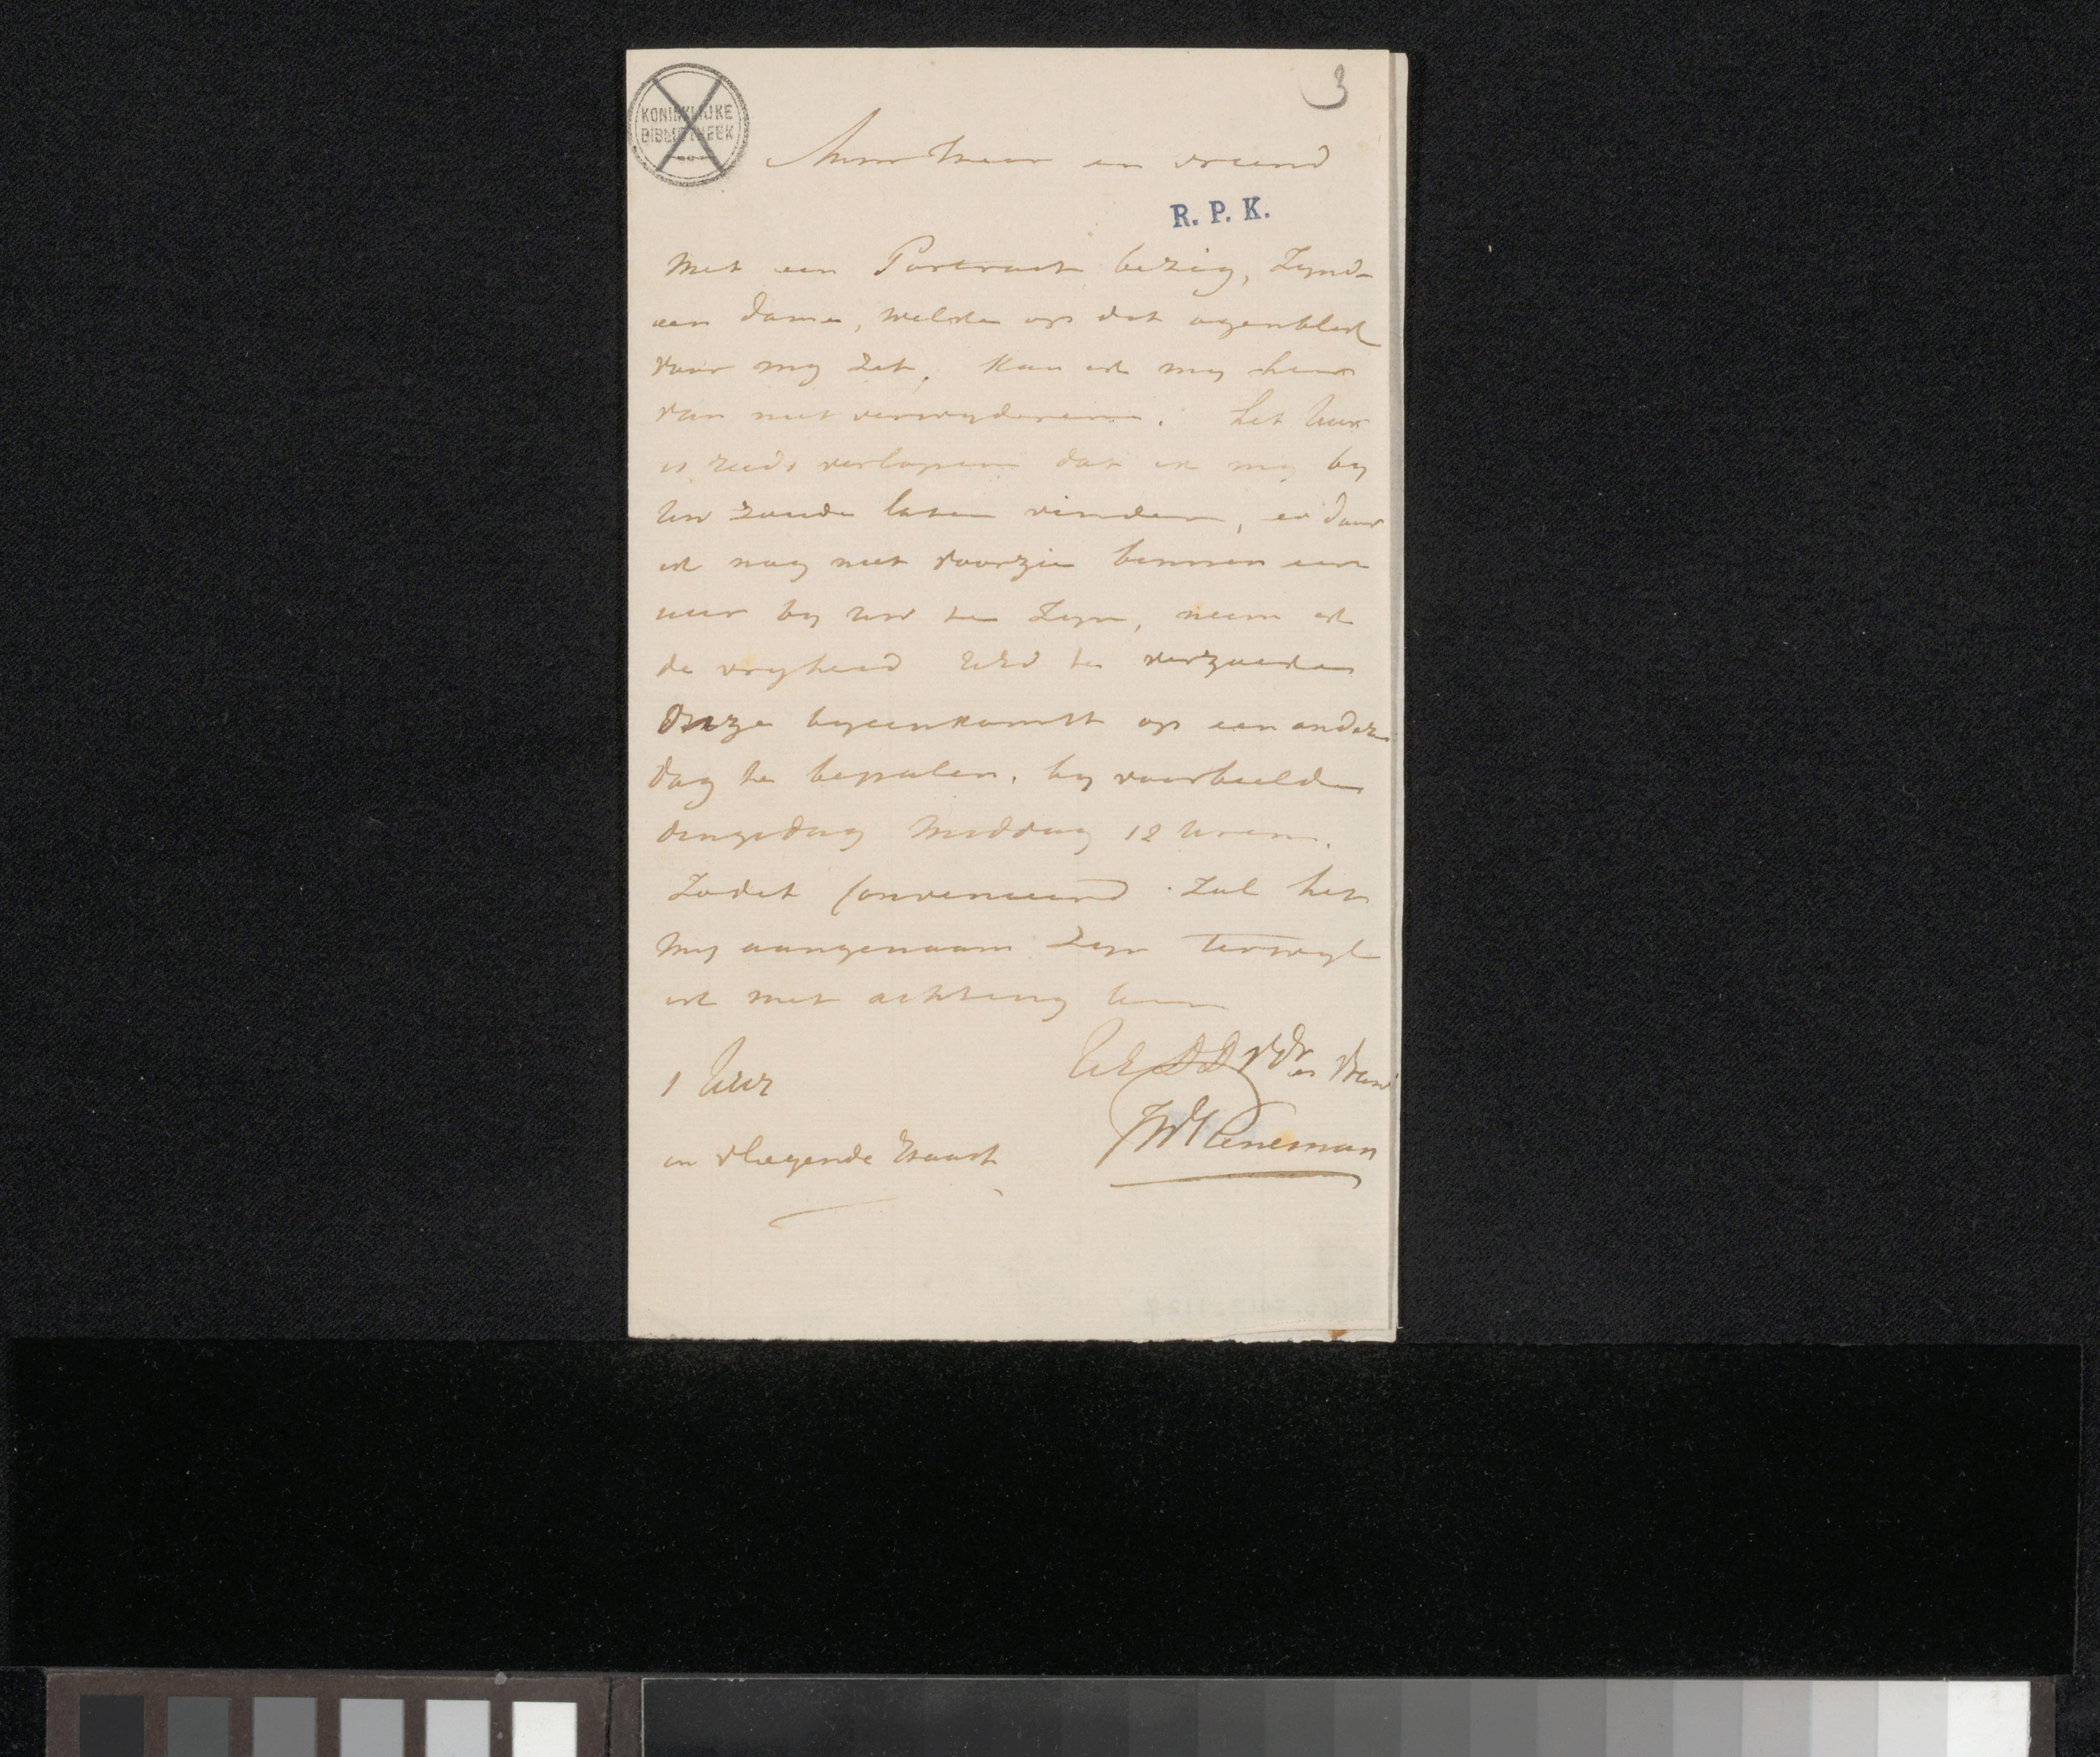 3
KONINKLIJKE
BIBLIOTHEEK
Mijn heer en vriend
R. P. K.
Met een Portrait bezig, Zynde
een dame, welke op dit ogenblik
voor my zit, kan ik my hier
van niet verwyderen. het Uur
is reeds verlopen dat ik my by
Uw zoude laten vinden, en daar
ik nog niet voorzie binnen een
uur by uw te Zyn, neem ik
de vryheid UEd te verzoeken
Onze byeenkomst op een andere
dag te bepalen. by voorbeelde
dingsdag Middag 12 Uren.
Zo dit Convenieerd Zal het
My aangenaam Zyn terwyl
ik met achting ben
UE DD en Vriend
1 Uur
JW Pieneman
in vliegende haast